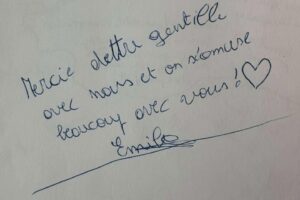 Mercie d'être gentille
avec nous et on s'amuse
beaucoup avec vous! ♡
Emilie